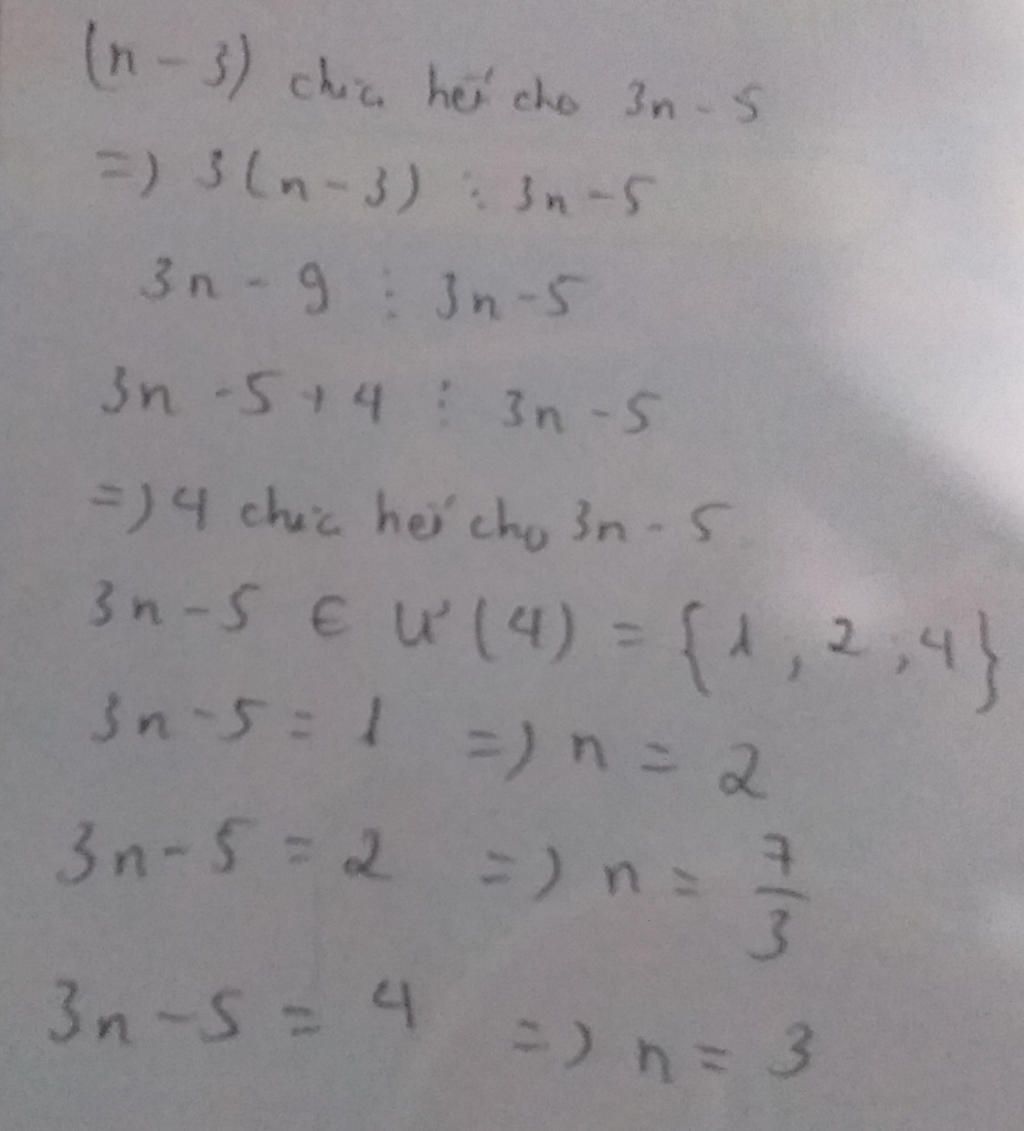 (n - 3) chia hết cho 3n - 5
=) 3(n - 3) ⋮ 3n - 5
3n - 9 ⋮ 3n - 5
3n - 5 + 4 ⋮ 3n - 5
=) 4 chia hết cho 3n - 5
3n - 5 ∈ Ư(4) = {1, 2, 4}
3n - 5 = 1 =) n = 2
3n - 5 = 2 =) n = 7/3
3n - 5 = 4 =) n = 3